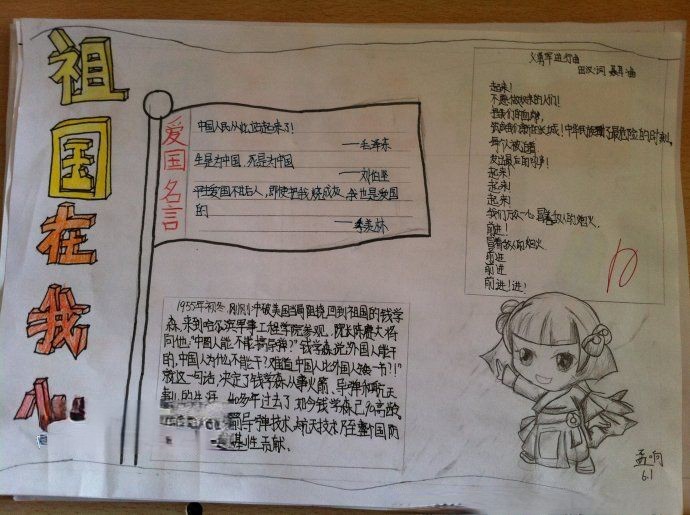 祖国在我心
爱国名言
中国人民从此站起来了!
——毛泽东
生是为中国,死是为中国
——刘伯坚
平生爱国不甘后人,即使把我烧成灰,我也是爱国
的
——季羡林
义勇军进行曲
田汉·词 聂耳·曲
起来!
不愿做奴隶的人们!
把我们的血肉,
筑成我们新的长城!中华民族到了最危险的时刻,
每个人被迫着
发出最后的吼声!
起来!
起来!
起来
我们万众一心,冒着敌人的炮火,
前进!
冒着敌人的炮火
前进
前进
前进!进!
1955年初冬,刚刚冲破美国当局阻挠回到祖国的钱学
森,来到哈尔滨军事工程学院参观,院长陈赓大将
问他:“中国人能不能搞导弹?”钱学森说:“外国人能干
的,中国人为什么不能干?难道中国人比外国人矮一节?!”
就这一句话,决定了钱学森从事火箭、导弹和航天
的生涯,
年过去了,如今钱学森已
导弹技术,航天技术乃至整个国防
性贡献.
孟响
6.1